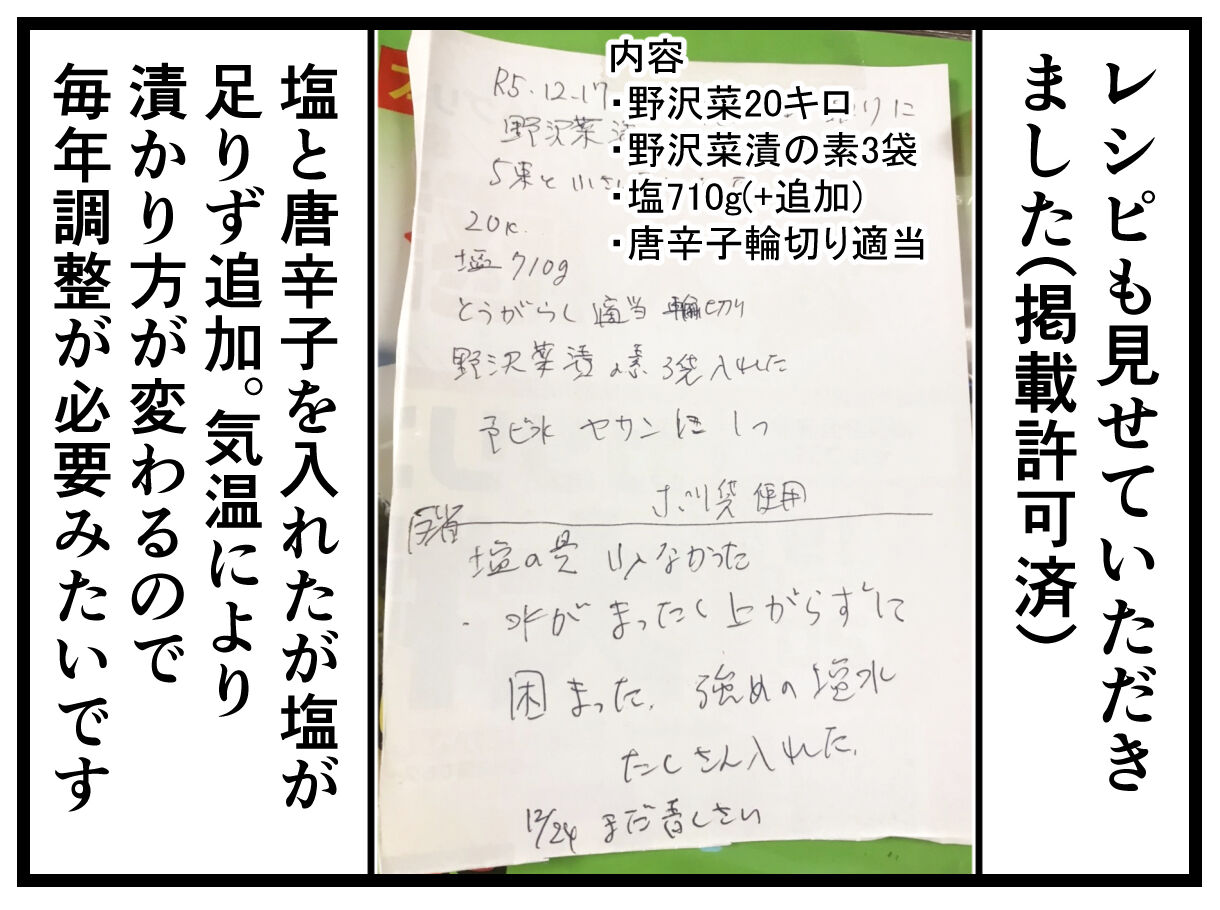 レシピも見せていただき
ました(掲載許可済)
内容
・野沢菜20キロ
・野沢菜漬の素3袋
・塩710g(+追加)
・唐辛子輪切り適当
R5.12.17
野沢菜漬
5束と小さい
20K.
塩710g
とうがらし 適当 輪切り
野沢菜漬の素 3袋入れた
ヤカン
ポリ袋使用
反省
塩の量 少なかった
・水がまったく上がらずして
困まった. 強めの塩水
たくさん入れた.
12/24 まだ青くさい
塩と唐辛子を入れたが塩が
足りず追加。気温により
漬かり方が変わるので
毎年調整が必要みたいです